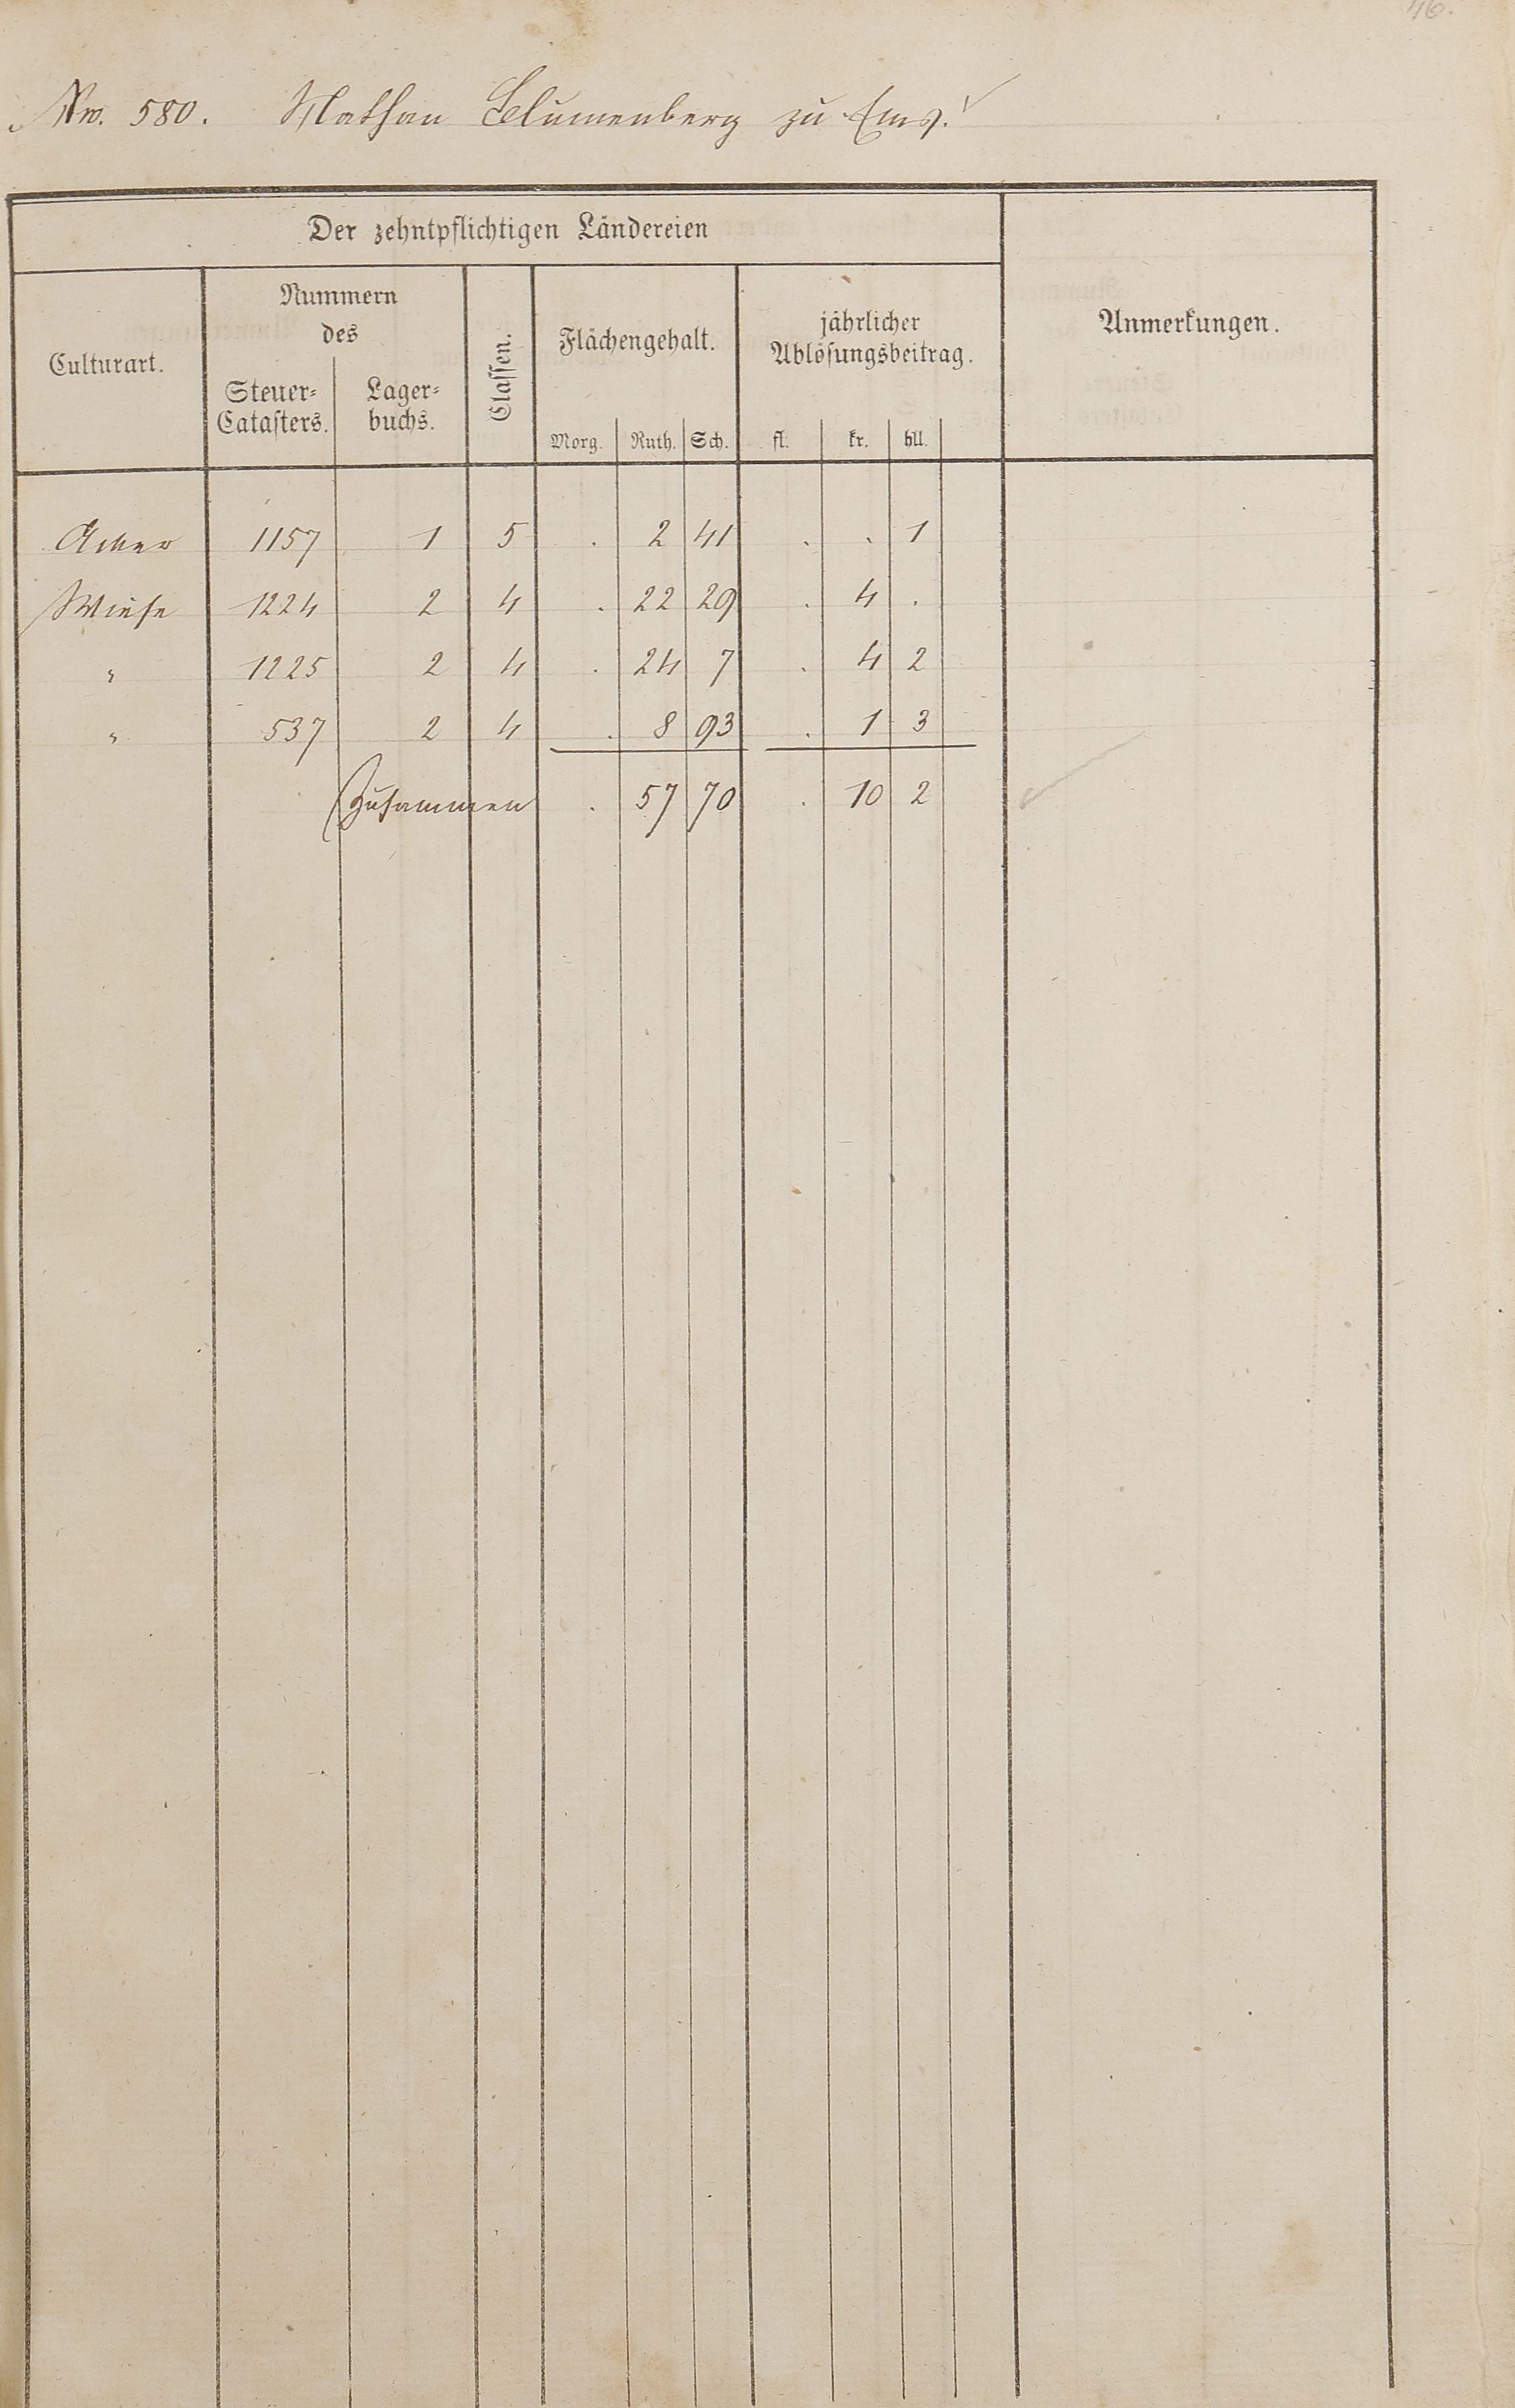 No. 580. Nathan Blumenberg zu Ems.
Der zehntpflichtigen Ländereien
Culturart. Nummern des Classen. Flächengehalt. jährlicher Ablösungsbeitrag. Anmerkungen.
Steuer-Catasters. Lager-buchs. Morg. Ruth. Sch. fl. kr. hll.
Acker 1157 1 5 . 2 41 . . 1
Wiese 1224 2 4 . 22 29 . 4 .
" 1225 2 4 . 24 7 . 4 2
" 537 2 4 . 8 93 . 1 3
Zusammen . 57 70 . 10 2